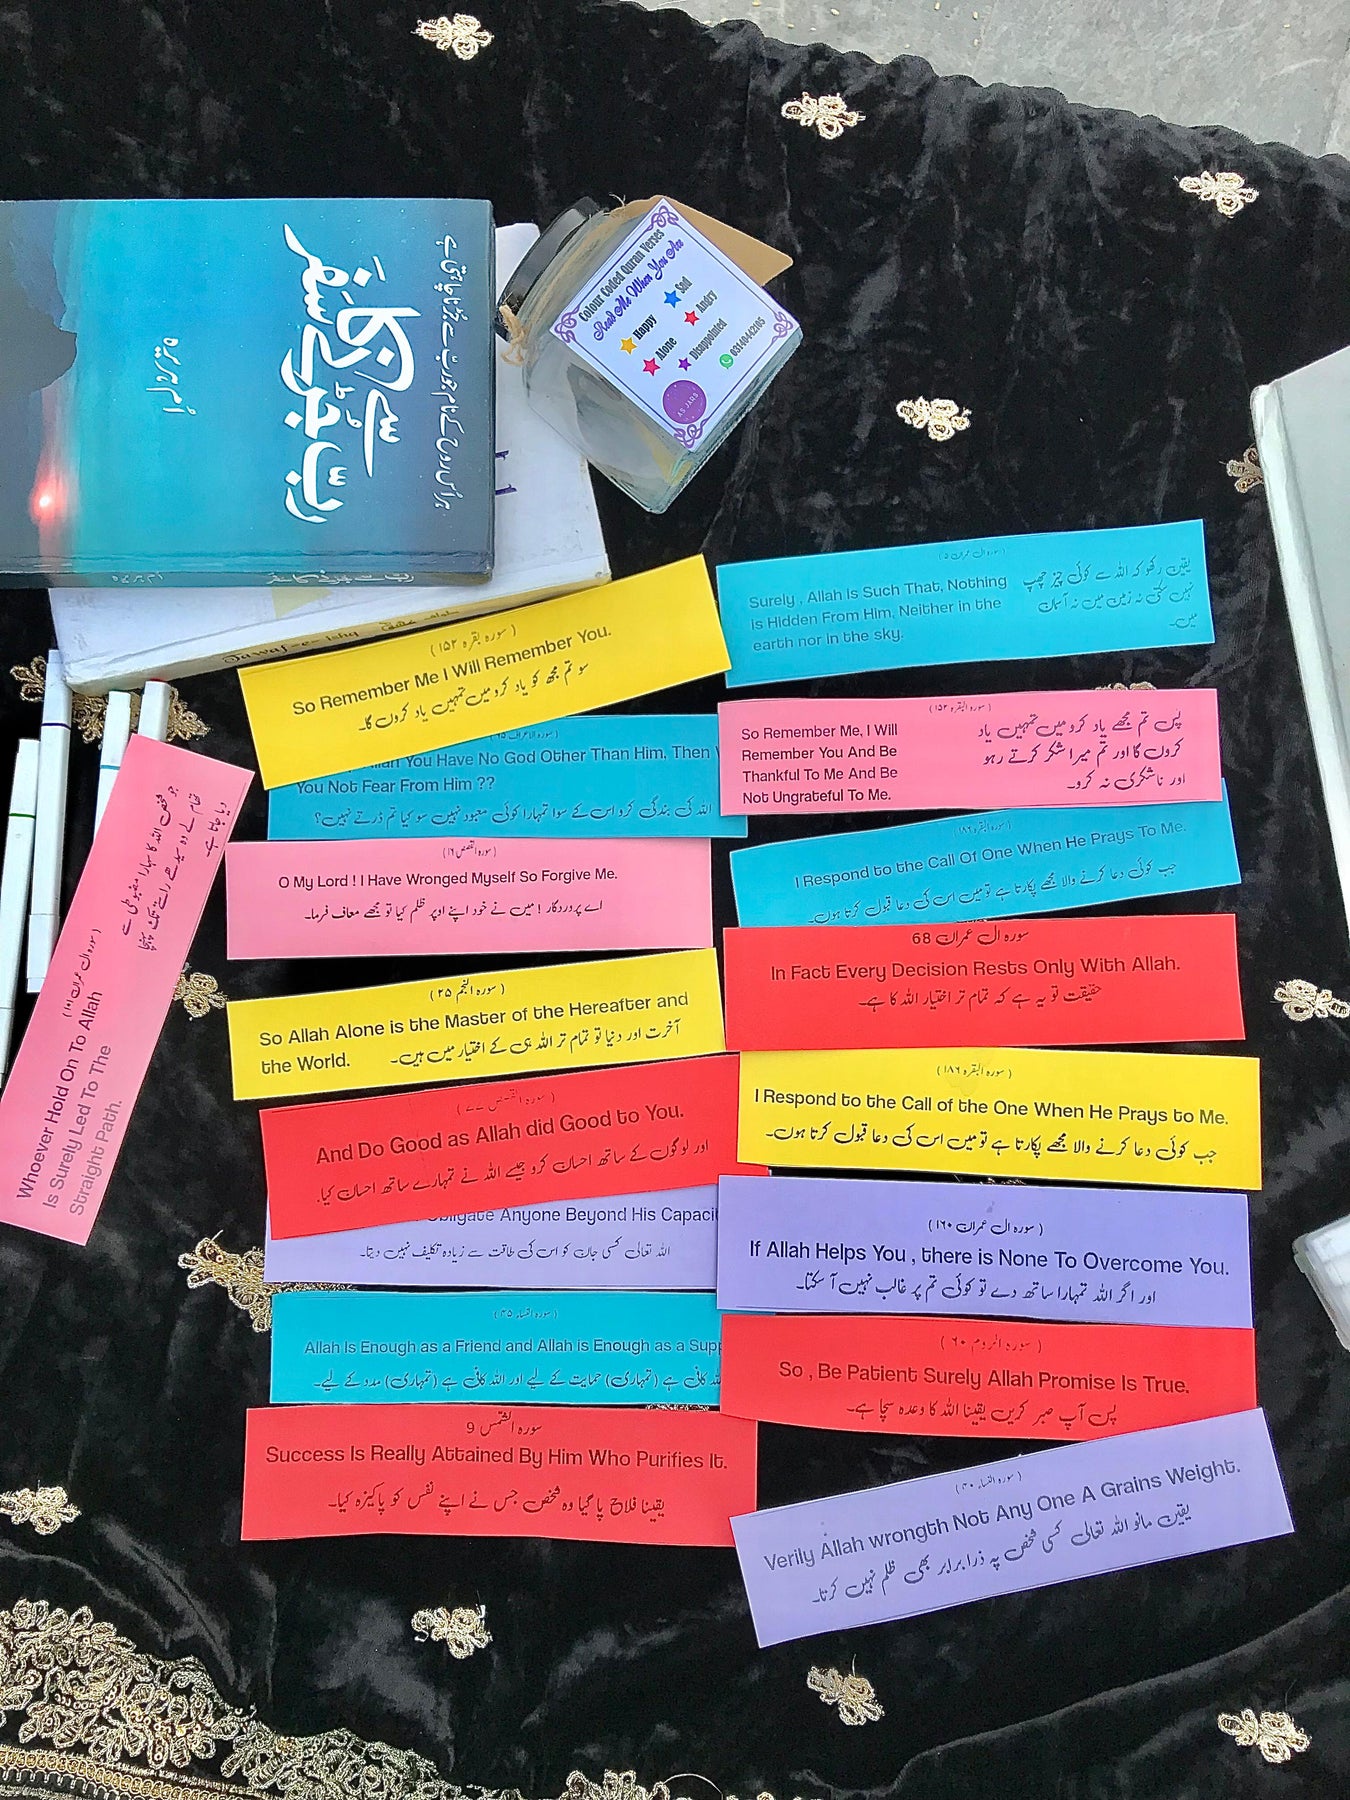 ہر اُس روح کے نام جو ربّ سے جُڑنا چاہتی ہے
ربّ سے
جُڑنے کا سفر
اُمِّ ہریرہ
Tawaf-e-Ishq
Colour Coded Quran Verses
Read Me When You Are
Happy
Sad
Alone
Angry
Disappointed
03140442105
ASJARS
(سورہ بقرہ ۱۵۲)
So Remember Me I Will Remember You.
سو تم مجھ کو یاد کرو میں تمہیں یاد کروں گا۔
You Have No God Other Than Him, Then
You Not Fear From Him ??
اللہ کی بندگی کرو اس کے سوا تمہارا کوئی معبود نہیں سو کیا تم ڈرتے نہیں؟
(سورہ القصص ۱۶)
O My Lord ! I Have Wronged Myself So Forgive Me.
اے پروردگار ! میں نے خود اپنے اوپر ظلم کیا تو مجھے معاف فرما۔
(سورہ النجم ۲۵)
So Allah Alone is the Master of the Hereafter and
the World.
آخرت اور دنیا تو تمام تر اللہ ہی کے اختیار میں ہیں۔
(سورہ القصص ۷۷)
And Do Good as Allah did Good to You.
اور لوگوں کے ساتھ احسان کرو جیسے اللہ نے تمہارے ساتھ احسان کیا۔
Obligate Anyone Beyond His
اللہ تعالی کسی جان کو اس کی طاقت سے زیادہ تکلیف نہیں دیتا۔
Allah Is Enough as a Friend and Allah is Enough as a
کافی ہے (تمہاری) حمایت کے لیے اور اللہ کافی ہے (تمہاری) مدد کے لیے۔
سورہ الشمس 9
Success Is Really Attained By Him Who Purifies It.
یقینا فلاح پا گیا وہ شخص جس نے اپنے نفس کو پاکیزہ کیا۔
(سورہ ال عمران ۱۰۱)
Whoever Hold On To Allah
Is Surely Led To The
Straight Path.
جو شخص اللہ کا سہارا مضبوطی سے
تھام لے وہ سیدھے راستے تک پہنچا
دیا جاتا ہے
(سورہ ال عمران ۵)
Surely , Allah Is Such That, Nothing
is Hidden From Him, Neither in the
earth nor in the sky.
یقین رکھو کہ اللہ سے کوئی چیز چھپ
نہیں سکتی نہ زمین میں نہ آسمان
میں۔
(سورہ البقرہ ۱۵۲)
So Remember Me, I Will
Remember You And Be
Thankful To Me And Be
Not Ungrateful To Me.
پس تم مجھے یاد کرو میں تمہیں یاد
کروں گا اور تم میرا شکر کرتے رہو
اور ناشکری نہ کرو۔
(سورہ البقرہ ۱۸۶)
I Respond to the Call Of One When He Prays To Me.
جب کوئی دعا کرنے والا مجھے پکارتا ہے تو میں اس کی دعا قبول کرتا ہوں۔
سورہ ال عمران 68
In Fact Every Decision Rests Only With Allah.
حقیقت تو یہ ہے کہ تمام تر اختیار اللہ کا ہے۔
(سورہ البقرہ ۱۸۶)
I Respond to the Call of the One When He Prays to Me.
جب کوئی دعا کرنے والا مجھے پکارتا ہے تو میں اس کی دعا قبول کرتا ہوں۔
(سورہ ال عمران ۱۶۰)
If Allah Helps You , there is None To Overcome You.
اور اگر اللہ تمہارا ساتھ دے تو کوئی تم پر غالب نہیں آ سکتا۔
(سورہ الروم ۶۰)
So , Be Patient Surely Allah Promise Is True.
پس آپ صبر کریں یقینا اللہ کا وعدہ سچا ہے۔
(سورہ النساء ۴۰)
Verily Allah wrongth Not Any One A Grains Weight.
یقین مانو اللہ تعالی کسی شخص پہ ذرا برابر بھی ظلم نہیں کرتا۔